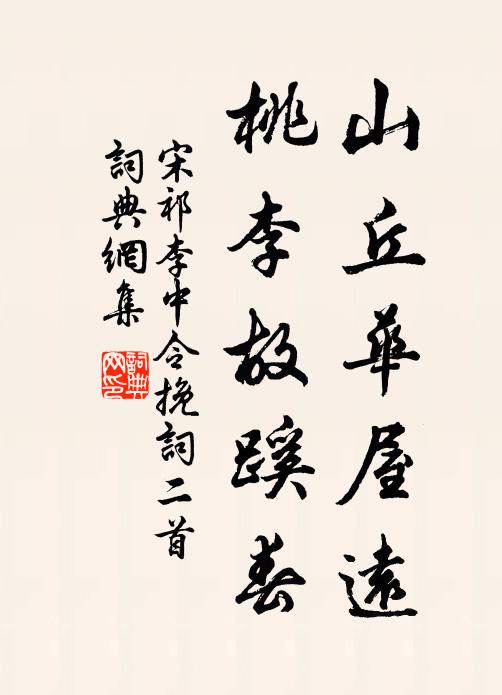 山丘華屋遠
桃李故蹊春
宋祁李中令挽詞二首
詞典網集
詞典网印